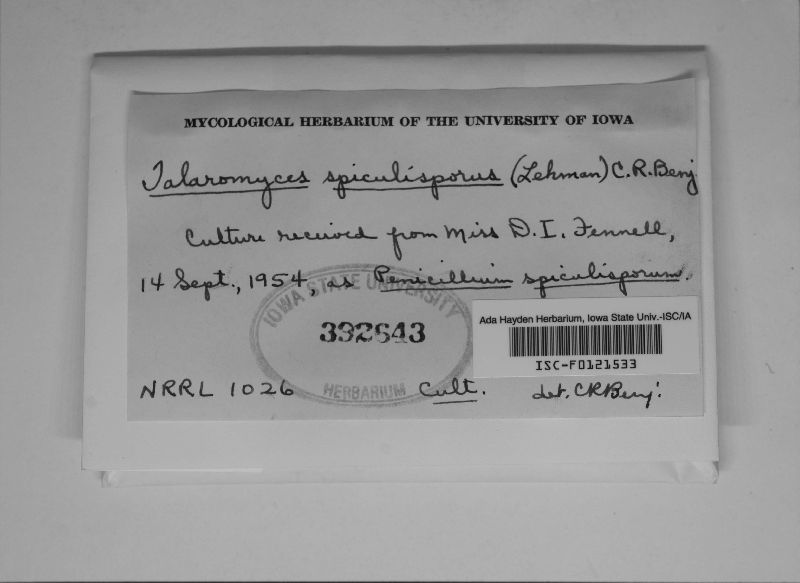 MYCOLOGICAL HERBARIUM OF THE UNIVERSITY OF IOWA
Talaromyces spiculisporus (Lehman) C.R.Benj.
Culture received from Miss D.I. Fennell,
14 Sept., 1954, as Penicillium spiculisporum.
IOWA STATE UNIVERSITY
392643
HERBARIUM
Ada Hayden Herbarium, Iowa State Univ.-ISC/IA
ISC-F0121533
NRRL 1026 Cult. det. CRBenj.